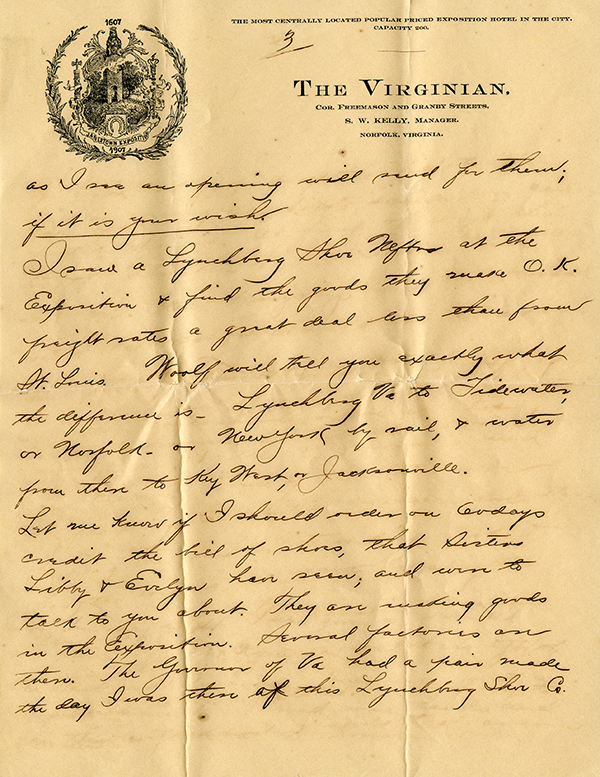 THE MOST CENTRALLY LOCATED POPULAR PRICED EXPOSITION HOTEL IN THE CITY.
CAPACITY 200.
3
1607
JAMESTOWN EXPOSITION
1907
THE VIRGINIAN,
COR. FREEMASON AND GRANBY STREETS,
S. W. KELLY, MANAGER.
NORFOLK, VIRGINIA.
as I see an opening will send for them,
if it is your wish.
I saw a Lynchberg Shoe at the
Exposition & find the goods they make O. K.
freight rates a great deal less than from
St. Louis. Woolf will tell you exactly what
the difference is - Lynchberg Va to Tidewater,
or Norfolk - or New York by rail, & water
from there to Key West, or Jacksonville.
Let me know if I should order on 60 days
credit the bill of shoes, that Sisters
Libby & Evelyn have seen; and were to
talk to you about. They are making goods
in the Exposition. Several factories are
there. The Govenor of Va had a pair made
the day I was there at this Lynchberg Shoe Co.